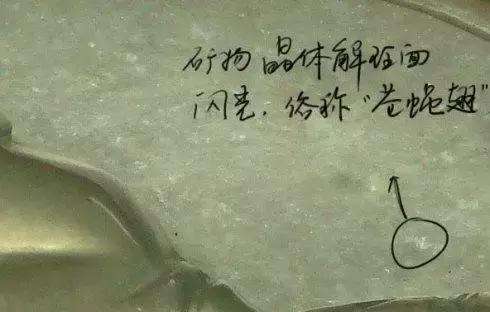 矿物晶体解理面
闪亮，俗称"苍蝇翅"